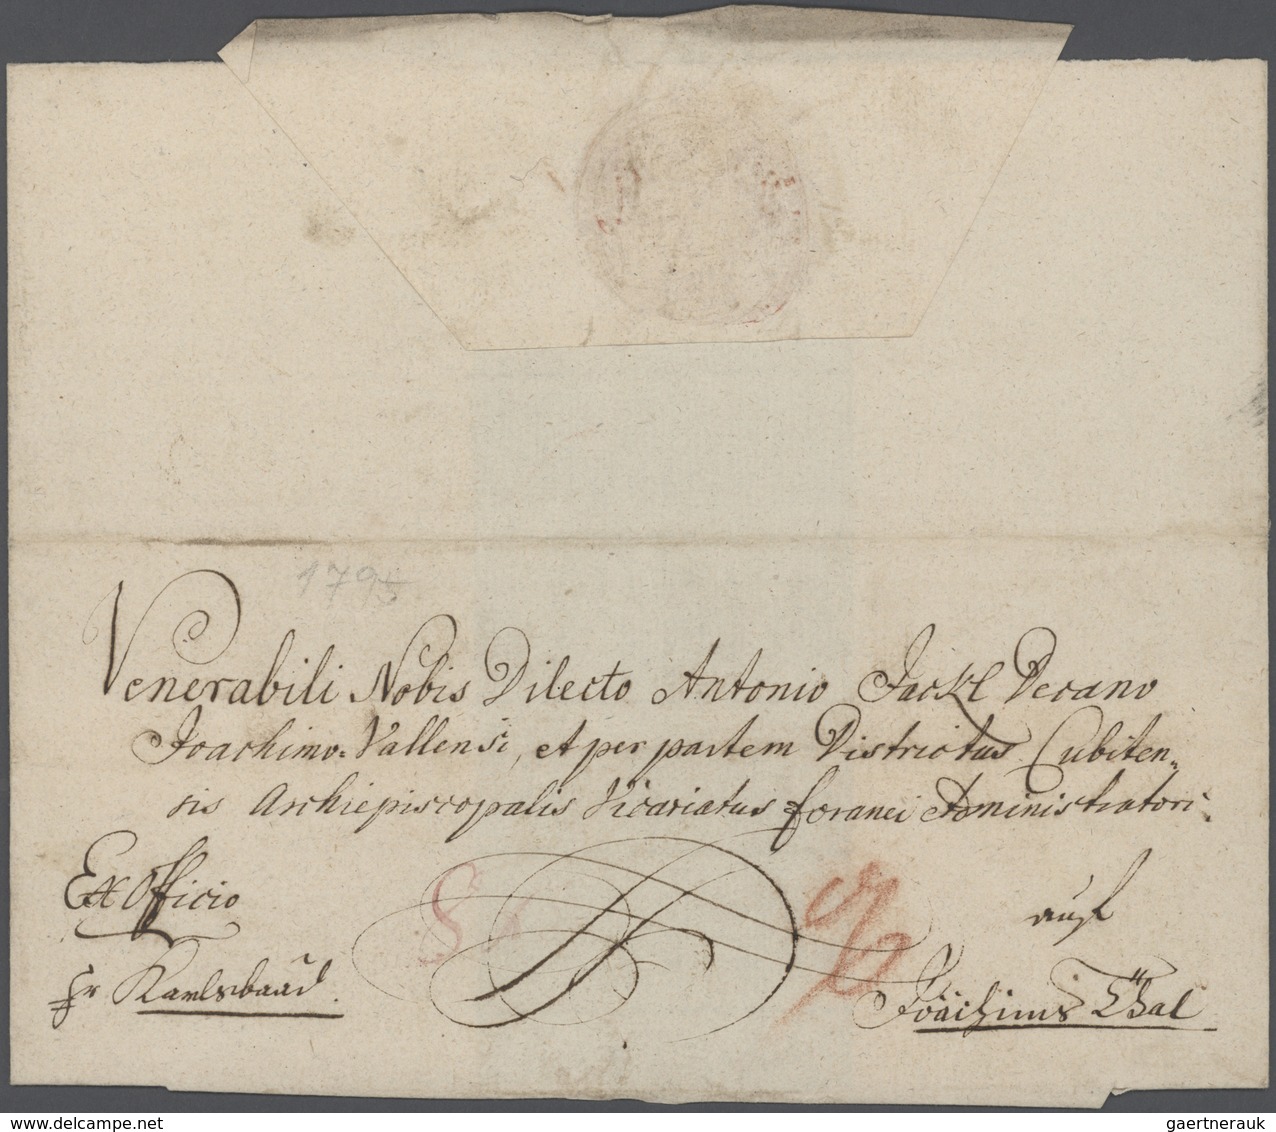 1795
Venerabili Nobis Dilecto Antonio Jackl Decano
Joachimo-Vallensi, et per partem Districtus Cubiten„
sis Archiepiscopalis Vicariatus foranei Administratori.
Ex Officio
auf
fr Karlsbaad.
Joachims Thal
www.delcampe.net
gaertnerauk